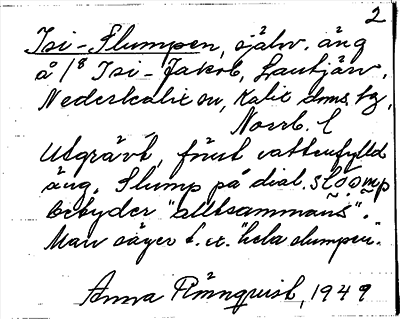 2
Isi-Slumpen, självst. äng
å 1/8 Isi-Jakob, Lantjärv,
Nederkalix sn, Kalix dms tg,
Norrb. l
Utgrävt, förut vattenfylld
äng. Slump på dial. slomp
betyder "alltsammans".
Man säger t. ex. "hela slumpen".
Anna Rönnqvist, 1949